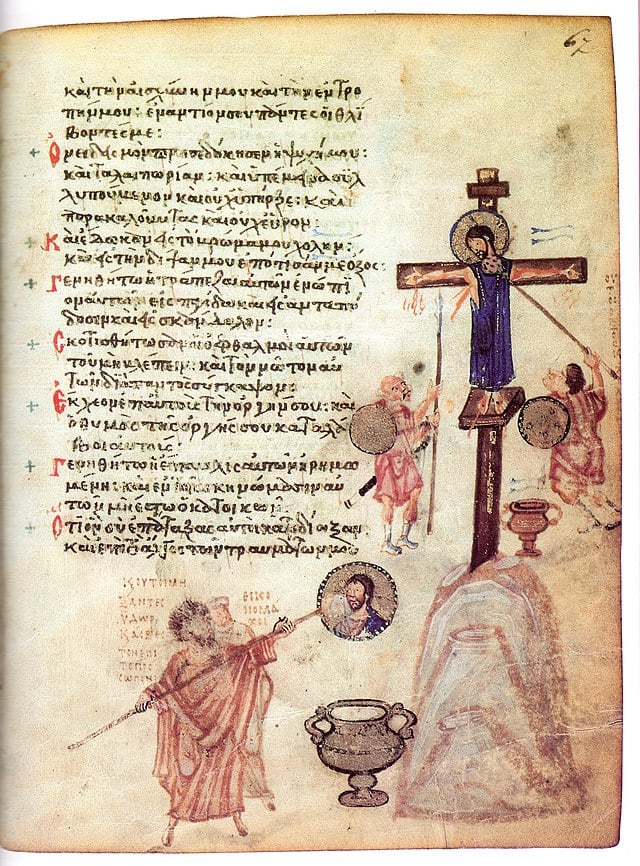 67
καὶ τὴν αἰσχύνην μου καὶ τὴν ἐντρο
πήν μου: ἐναντίον σου πάντες οἱ θλί
βοντές με:
Ὀνειδισμὸν προσεδόκησεν ἡ ψυχή μου:
καὶ ταλαιπωρίαν: καὶ ὑπέμεινα συλ
λυπούμενον καὶ οὐχ ὑπῆρξε: καὶ
παρακαλοῦντας καὶ οὐχ εὗρον:
Καὶ ἔδωκαν εἰς τὸ βρῶμά μου χολήν:
καὶ εἰς τὴν δίψαν μου ἐπότισάν με ὄξος:
Γενηθήτω ἡ τράπεζα αὐτῶν ἐνώπι
ον αὐτῶν εἰς παγίδα καὶ εἰς ἀνταπό
δοσιν καὶ εἰς σκάνδαλον:
Σκοτισθήτωσαν οἱ ὀφθαλμοὶ αὐτῶν
τοῦ μὴ βλέπειν: καὶ τὸν νῶτον αὐ
τῶν διὰ παντὸς σύγκαμψον:
Ἔκχεον ἐπ αὐτοὺς τὴν ὀργήν σου: καὶ
ὁ θυμὸς τῆς ὀργῆς σου καταλά
βοι αὐτούς:
Γενηθήτω ἡ ἔπαυλις αὐτῶν ἠρημω
μένη: καὶ ἐν τοῖς σκηνώμασιν αὐ
τῶν μὴ ἔστω ὁ κατοικῶν:
Ὅτι ὃν σὺ ἐπάταξας αὐτοὶ κατεδίωξαν
καὶ ἐπὶ τὸ ἄλγος τῶν τραυμάτων μου